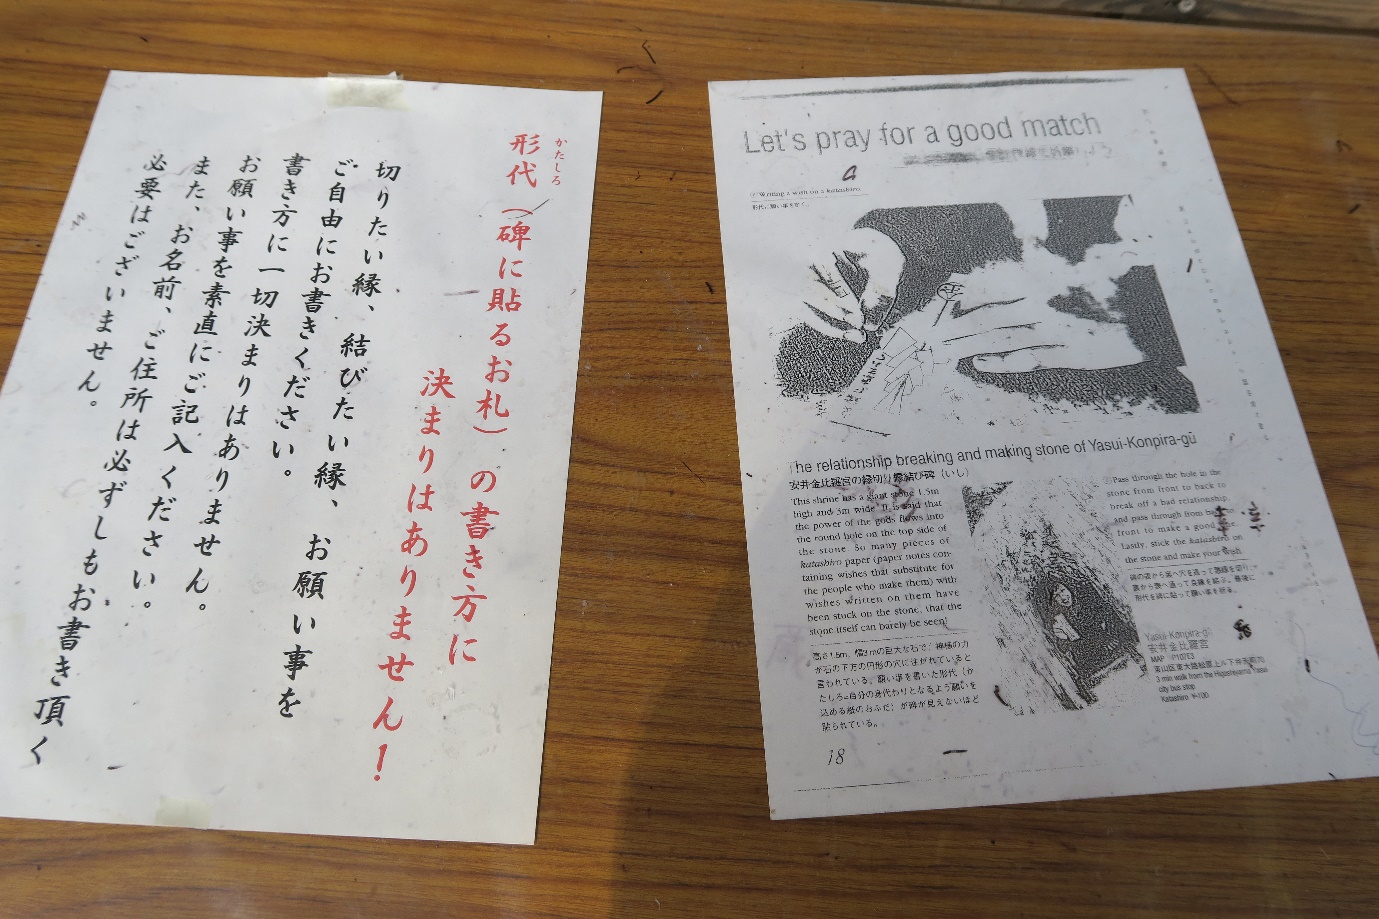 かたしろ
形代（碑に貼るお札）の書き方に
決まりはありません！
切りたい縁、結びたい縁、お願い事を
ご自由にお書きください。
書き方に一切決まりはありません。
お願い事を素直にご記入ください。
また、お名前、ご住所は必ずしもお書き頂く
必要はございません。
Let's pray for a good match
Writing a wish on a katashiro
形代に願い事を書く。
The relationship breaking and making stone of Yasui-Konpira-gū
安井金比羅宮の縁切り縁結び碑（いし）
This shrine has a giant stone 1.5m
high and 3m wide. It is said that
the power of the gods flows into
the round hole on the top side of
the stone. So many pieces of
katashiro paper (paper notes con-
taining wishes that substitute for
the people who make them) with
wishes written on them have
been stuck on the stone, that the
stone itself can barely be seen!
高さ1.5m、幅3mの巨大な石で、神様の力
が石の下方の円形の穴にほがれていると
言われている。願い事を書いた形代（か
たしろ=自分の身代わりとなるよう願いを
込める紙のおふだ）が碑が見えないほど
貼られている。
Pass through the hole in the
stone from front to back to
break off a bad relationship,
and pass through from
front to make a good
Lastly, stick the katashiro on
the stone and make your wish
碑の表から裏へ穴を通って悪縁を切り、
裏から表へ通って良縁を結ぶ。最後に
形代を碑に貼って願い事を祈る。
Yasui-Konpira-gū
安井金比羅宮
MAP
3 min walk from the Higashiyama Yasui
city bus stop
Katashiro ¥100
18